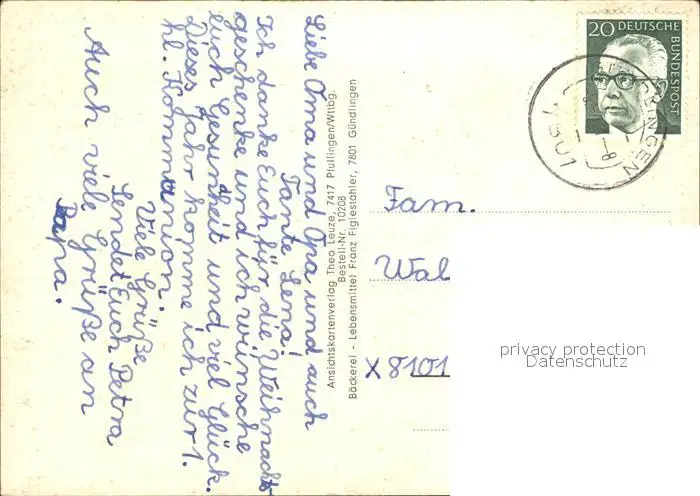 Liebe Oma und Opa und auch
Tante Lena!
Ich danke Euch für die Weihnachts
geschenke und ich wünsche
euch Gesundheit und viel Glück.
Dieses Jahr komme ich zur 1.
hl. Kommunion.
Viele Grüße
sendet Euch Petra
Auch viele Grüße an
Papa.
Ansichtskartenverlag Theo Leuze, 7417 Pfullingen/Wttbg.
Bestell-Nr. 10208
Bäckerei - Lebensmittel Franz Figlestahler, 7801 Gündlingen
20 DEUTSCHE
BUNDESPOST
7801
Fam.
Wal
X 8101
privacy protection
Datenschutz